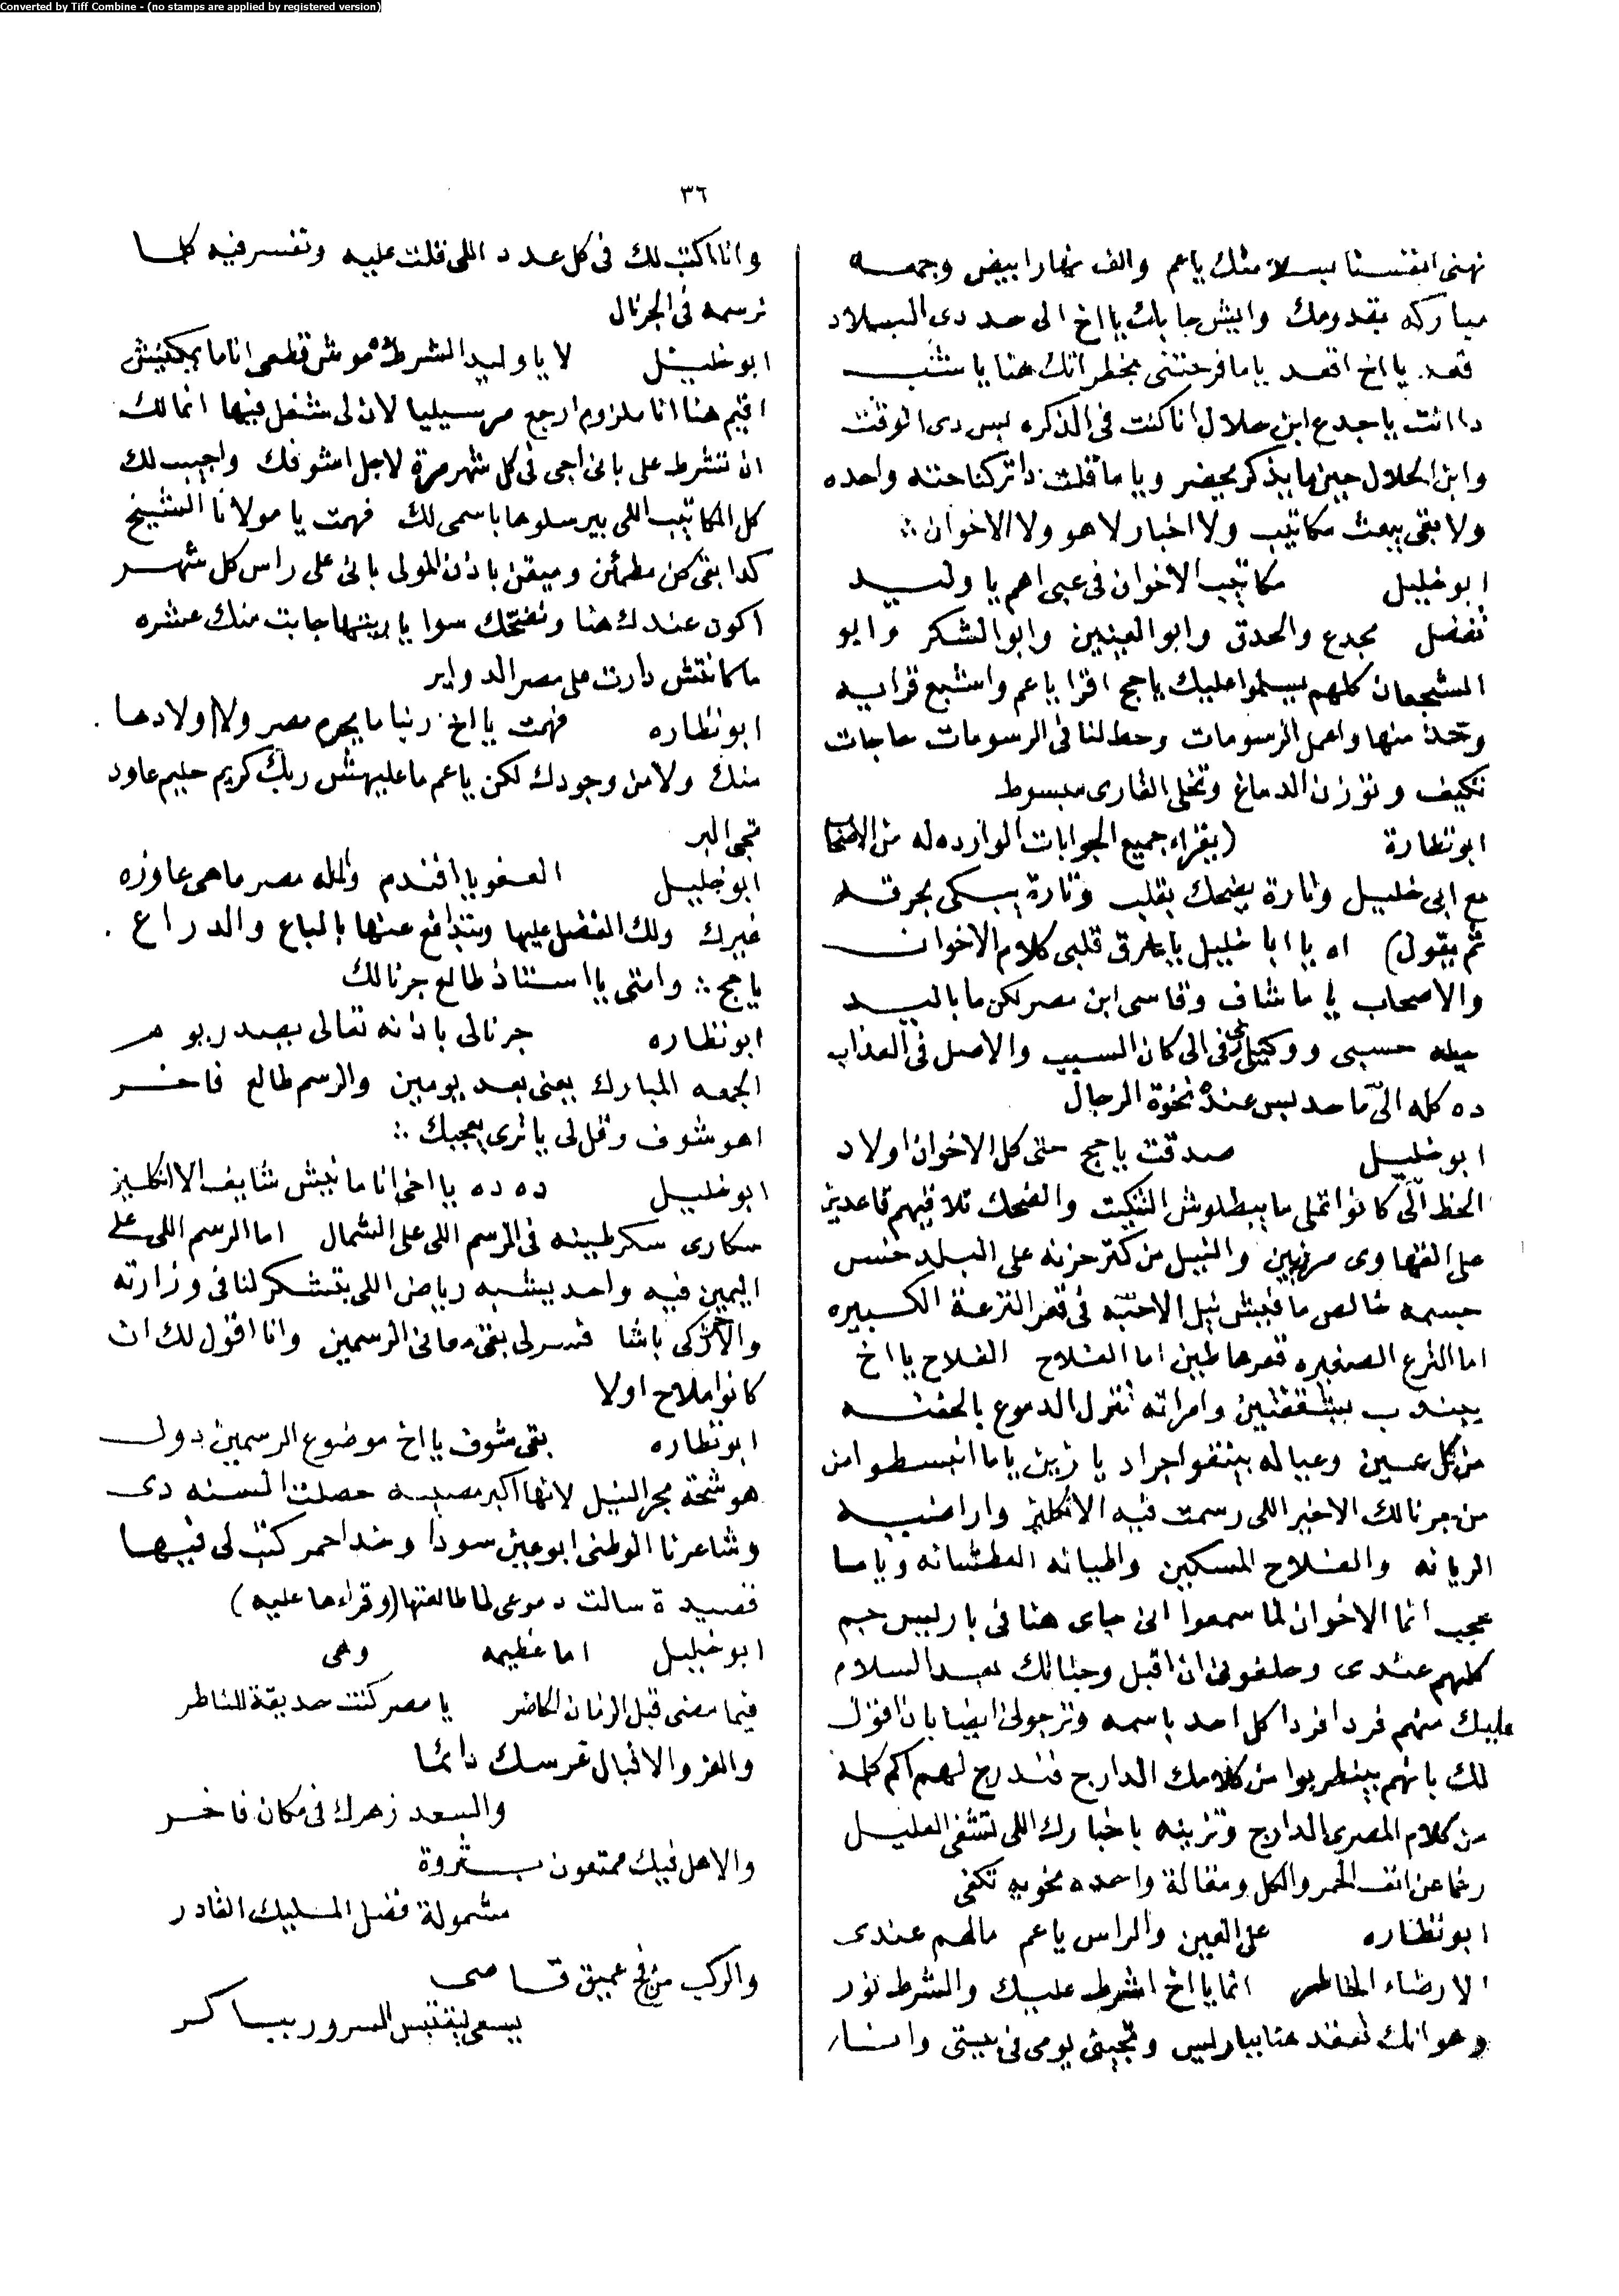 Converted by Tiff Combine - (no stamps are applied by registered version)
٣٦
نهنى انفسنا بسلامتك ياعم والف نهار ابيض وجمعه
مباركه بقدومك وايش جابك يا اخ الى حد دى البلاد
قعد. يا اخ اقعد ياما فرحتنى بخطراتك هنا يا شنب
دا انت ياجدع ابن حلال انا كنت فى الذكره ليس دى الوقت
وابن الحلال حين ما يذكر يحضر وياما قلت دا تركنا حته واحده
ولا بقى يبعت مكاتيب ولا اخبار لا هو ولا الاخوان
ابو خليل مكاتيب الاخوان فى عبى اهم يا وليد
تفضل مجدع والحدق وابو العينين وابو الشكر وابو
الشجعان كلهم بيسلموا عليك ياحج اقرا ياعم واشبع قرايه
وخذ منها واعمل الرسومات وحط لنا فى الرسومات حاجات
تكيف وتوزن الدماغ وتخلى القارى مبسوط
ابو نظارة (يقراء جميع الجوابات الوارده له من الاصحاب
مع ابى خليل وتارة يضحك بقلب وتارة يبكى بحرقه
ثم يقول) اه يا ابا خليل ياما حرق قلبى كلام الاخوان
والاصحاب ياما شاف وقاسى ابن مصر لكن ما باليد
حيله حسبى ووكيلى فى الى كان السبب والاصل فى العذاب
ده كله الّى ما حد ليس عنده نخوة الرجال
ابو خليل صدقت ياحج حتى كل الاخوان اولاد
الحظ الّى كانوا تملى ما يبطلوش التنكيت والضحك تلاقيهم قاعدين
على القهاوى مرزيين والنيل من كتر حزنه على البلد خسس
جسمه خالص ما فيش نيل الاحتّه فى قعر الترعة الكبيره
اما الترع الصغيره قعرها طين اما الفلاح الفلاح يا اخ
يبندب بيتقفتين وامراته تنزل الدموع بالحفنه
من كل عين وعياله بينقوا جراد يا زين ياما انبسطوا من
من جرنالك الاخير اللى رسمت فيه الانكليز واراضيه
الريانه والفلاح المسكين واطيانه العطشانه وياما
عجب انما الاخوان لما سمعوا انى جاى هنا فى باريس جم
كلهم عندى وحلفونى ان اقبل وجناتك بعد السلام
عليك منهم فردا فردا كل احد باسمه وترجونى ايضا بان اقول
لك بانهم بينطربوا من كلامك الدارج فتدرج لهم اكم كلمة
من كلام المصرى الدارج وتزينه باخبارك اللى تشفى العليل
رغما عن انف الحمر والكل ومقالة واحده نحويه تكفى
ابو نظاره على العين والراس ياعم مالهم عندى
الا رضاء الخاطر انما يا اخ اشرط عليك والشرط نور
وهو انك تقعد هنا بباريس وتجينى يومى فى بيتى وانا
وانا اكتب لك فى كل عدد اللى قلت عليه وتفسر فيه كلما
ترسمه فى الجرنال
ابو خليل لا يا وليد الشرط ده موش قطعى انا ما يمكنيش
اقيم هنا انا ملزوم ارجع مرسيليا لان لى شغل فيها انما لك
ان تشرط على بانى اجى فى كل شهر مرة لاجل اشوفك واجيب لك
كل المكاتيب اللى بيرسلوها باسمى لك فهمت يا مولانا الشيخ
كدا بقى كن مطمئن وميقن باذن المولى بانى على راس كل شهر
اكون عندك هنا ونضحك سوا ياريتها جابت منك عشره
ما كانتش دارت على مصر الدواير
ابو نظاره فهمت يا اخ ربنا ما يحرم مصر ولا اولادها
منك ولا من وجودك لكن ياعم ما عليهش ربك كريم حليم عاود
تجى البر
ابو خليل العفو يا افندم والله مصر ما هى عاوزه
غيرك ولك الفضل عليها وبتدافع عنها بالباع والدراع
ياحج وامتى يا استاذ طالع جرنالك
ابو نظاره جرنالى باذنه تعالى بيصدر يوم
الجمعه المبارك يعنى بعد يومين والرسم طالع فاخر
اهو شوف وقل لى يا ترى يعجبك
ابو خليل ده ده يا اخى انا مانيش شايف الا انكليز
سكارى سكر طينه فى الرسم اللى على الشمال اما الرسم اللى على
اليمين فيه واحد يشبه رياض اللى بتشكر لنا فى وزارته
والاخر زكى باشا فسر لى بقى معانى الرسمين وانا اقول لك ان
كانوا ملاح اولا
ابو نظاره بقى شوف يا اخ موضوع الرسمين دول
هو شحة بحر النيل لانها اكبر مصيبه حصلت السنه دى
وشاعرنا الوطنى ابو عين سودا وخد احمر كتب لى فيها
قصيدة سالت دموعى لما طالعتها (وقراءها عليه)
ابو خليل اما عظيمه وهى
فيما مضى قبل الزمان الحاضر يا مصر كنت حديقة للناظر
والعز والاقبال غرسك دائما
والسعد زهرك فى مكان فاخر
والاهل فيك ممتعون بثروة
مشمولة فضل المليك القادر
والركب من فج عميق قاصى
يسعى ليقتبس السرور يباكر